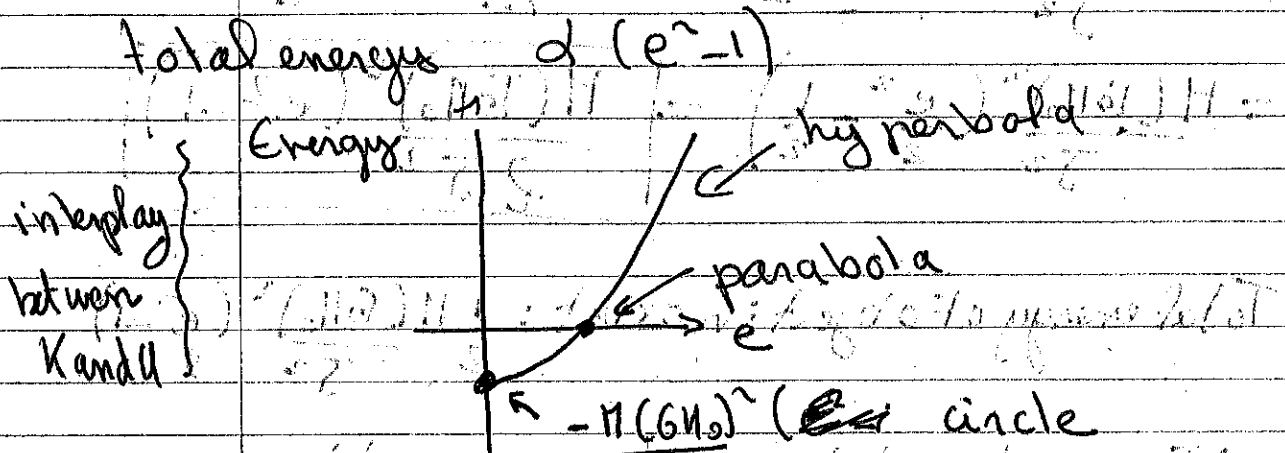 total energy α (e² - 1)
Energy
hyperbola
interplay
between
K and U
parabola
e
- M(GM₀)² ( circle